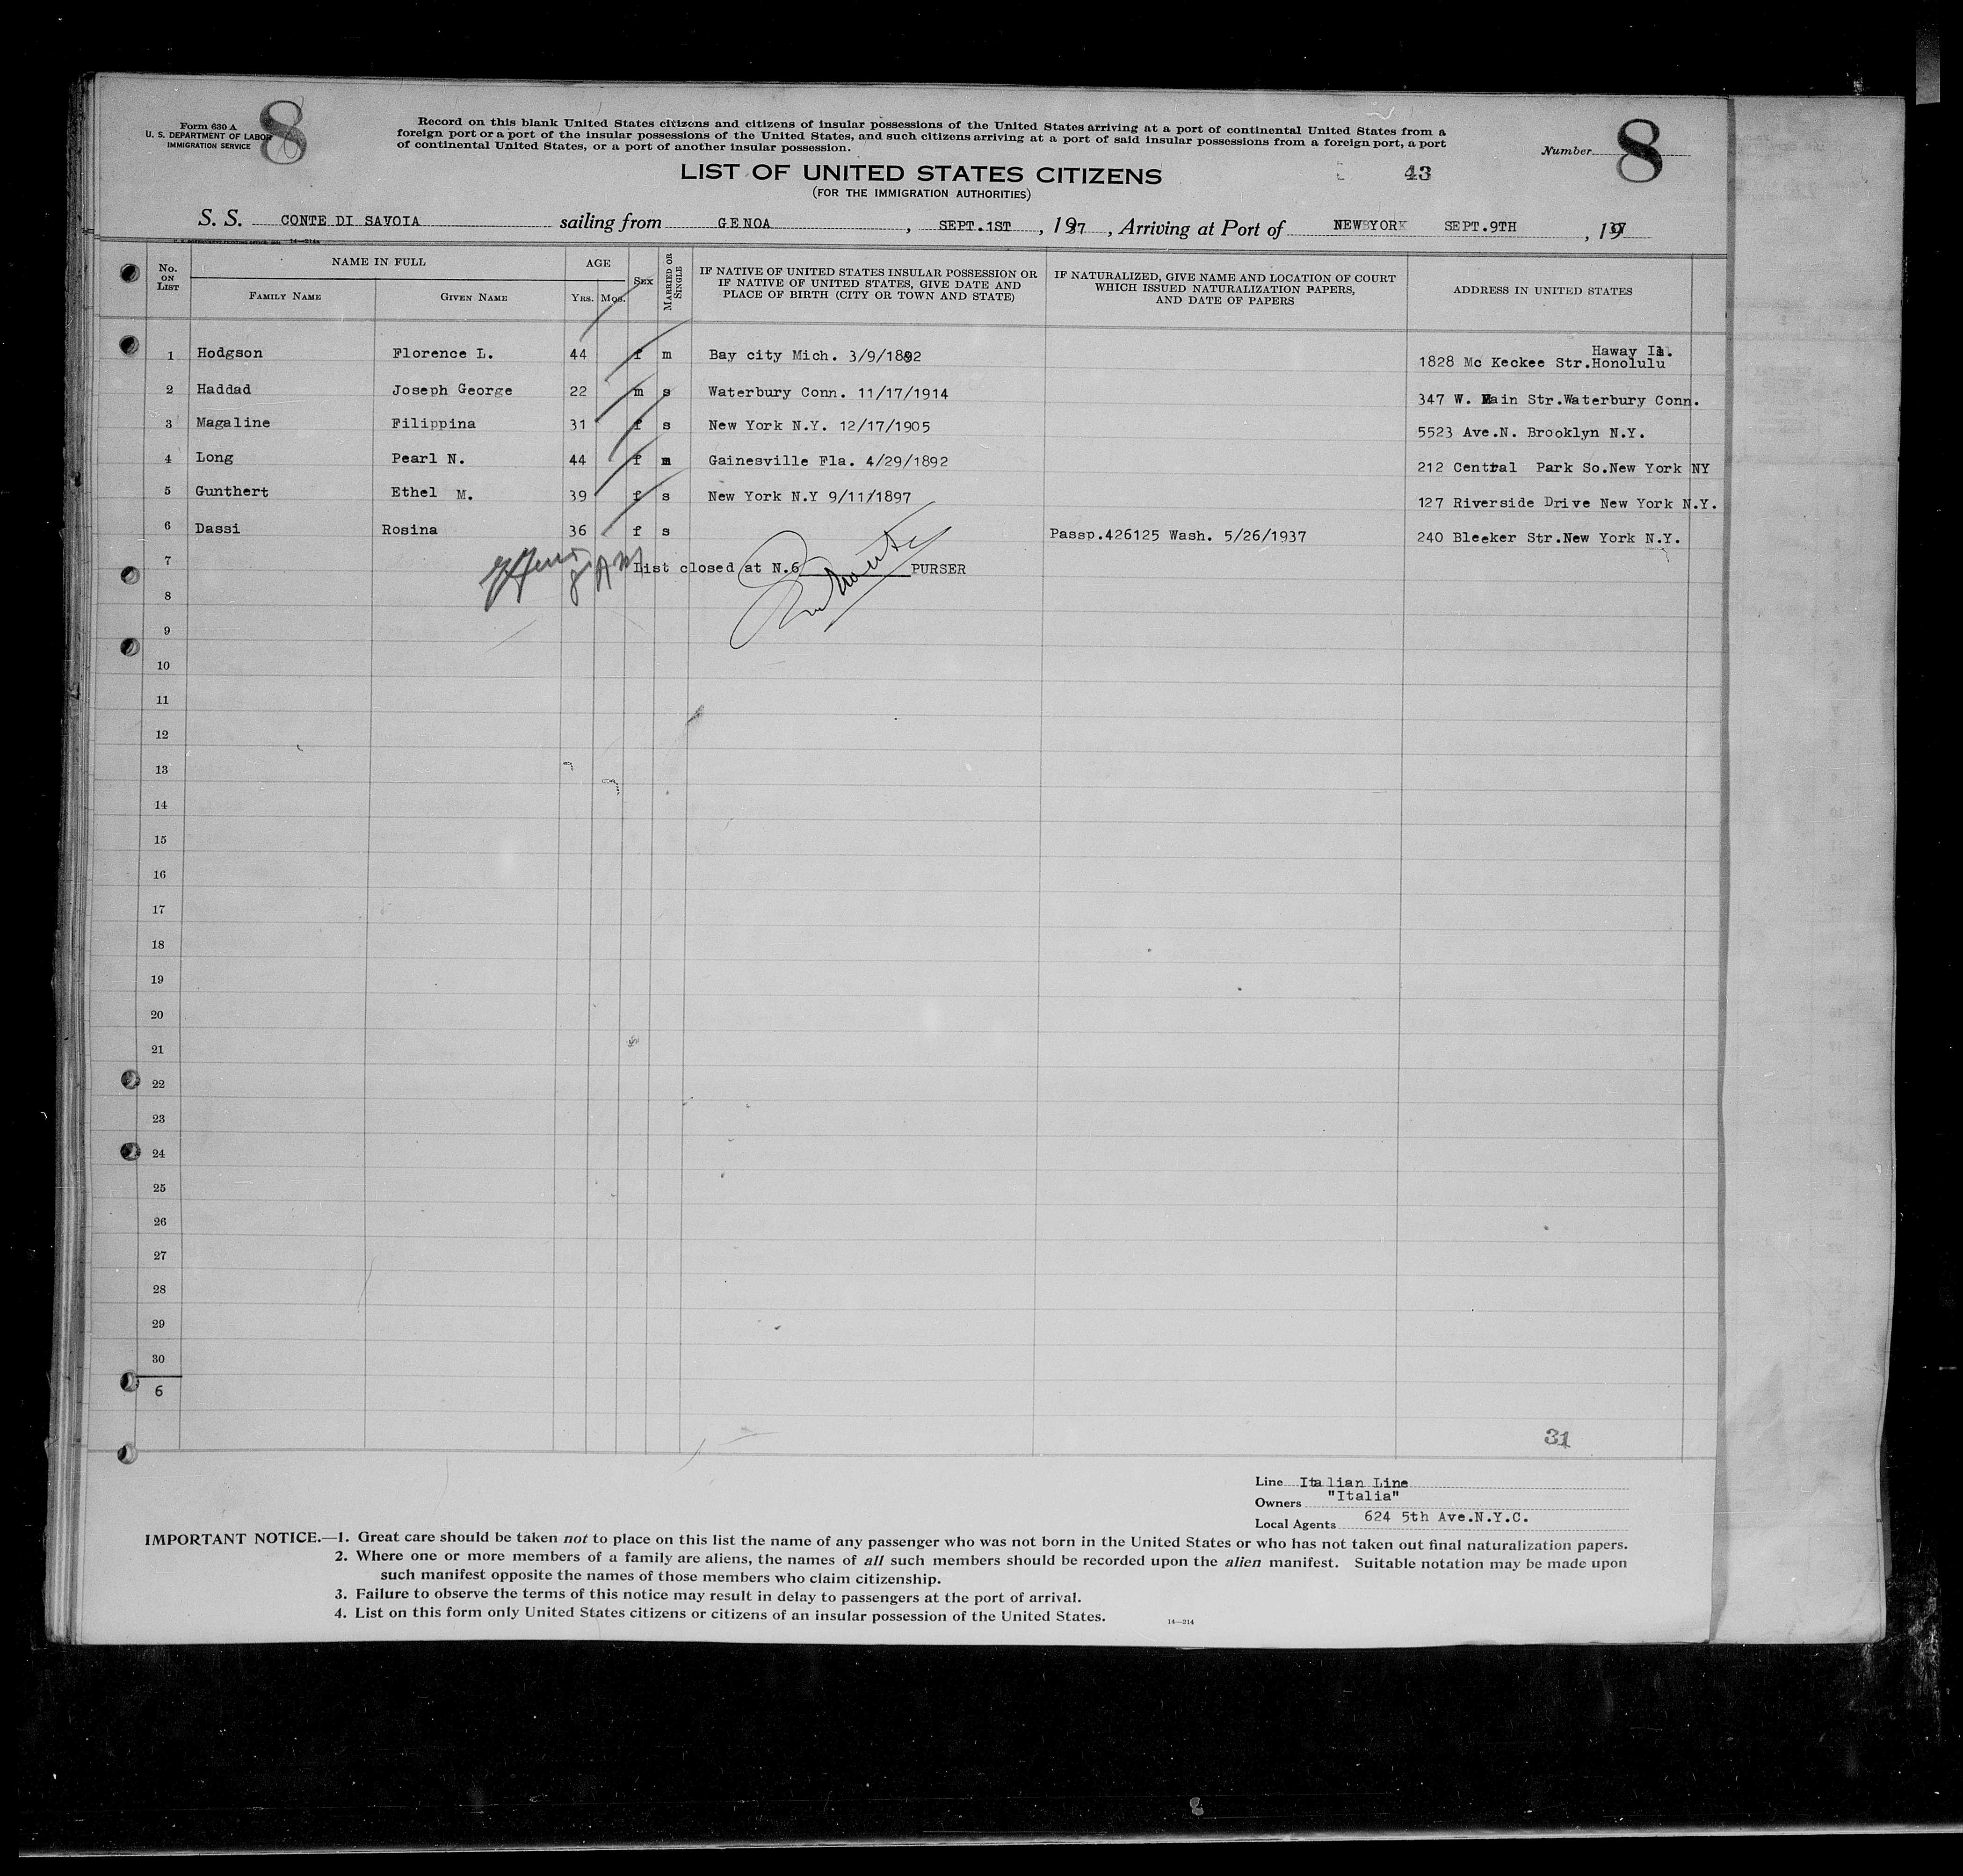 Form 630 A
U. S. DEPARTMENT OF LABOR
IMMIGRATION SERVICE
8
Record on this blank United States citizens and citizens of insular possessions of the United States arriving at a port of continental United States from a
foreign port or a port of the insular possessions of the United States, and such citizens arriving at a port of said insular possessions from a foreign port, a port
of continental United States, or a port of another insular possession.
Number 8
LIST OF UNITED STATES CITIZENS
(FOR THE IMMIGRATION AUTHORITIES)
43
S. S. CONTE DI SAVOIA sailing from GENOA, SEPT.1ST, 1937, Arriving at Port of NEW YORK SEPT.9TH, 1937
No. ON LIST
NAME IN FULL
FAMILY NAME
GIVEN NAME
AGE
YRS. MOS.
SEX
MARRIED OR SINGLE
IF NATIVE OF UNITED STATES INSULAR POSSESSION OR
IF NATIVE OF UNITED STATES, GIVE DATE AND
PLACE OF BIRTH (CITY OR TOWN AND STATE)
IF NATURALIZED, GIVE NAME AND LOCATION OF COURT
WHICH ISSUED NATURALIZATION PAPERS,
AND DATE OF PAPERS
ADDRESS IN UNITED STATES
1 Hodgson Florence L. 44 f m Bay city Mich. 3/9/1892 1828 Mc Keckee Str.Honolulu Haway Il.
2 Haddad Joseph George 22 m s Waterbury Conn. 11/17/1914 347 W. Main Str.Waterbury Conn.
3 Magaline Filippina 31 f s New York N.Y. 12/17/1905 5523 Ave.N. Brooklyn N.Y.
4 Long Pearl N. 44 f m Gainesville Fla. 4/29/1892 212 Central Park So.New York NY
5 Gunthert Ethel M. 39 f s New York N.Y 9/11/1897 127 Riverside Drive New York N.Y.
6 Dassi Rosina 36 f s Passp.426125 Wash. 5/26/1937 240 Bleeker Str.New York N.Y.
7 List closed at N.6 PURSER
8
9
10
11
12
13
14
15
16
17
18
19
20
21
22
23
24
25
26
27
28
29
30
6
31
Line Italian Line
Owners "Italia"
Local Agents 624 5th Ave.N.Y.C.
IMPORTANT NOTICE.—1. Great care should be taken not to place on this list the name of any passenger who was not born in the United States or who has not taken out final naturalization papers.
2. Where one or more members of a family are aliens, the names of all such members should be recorded upon the alien manifest. Suitable notation may be made upon
such manifest opposite the names of those members who claim citizenship.
3. Failure to observe the terms of this notice may result in delay to passengers at the port of arrival.
4. List on this form only United States citizens or citizens of an insular possession of the United States.
14—214